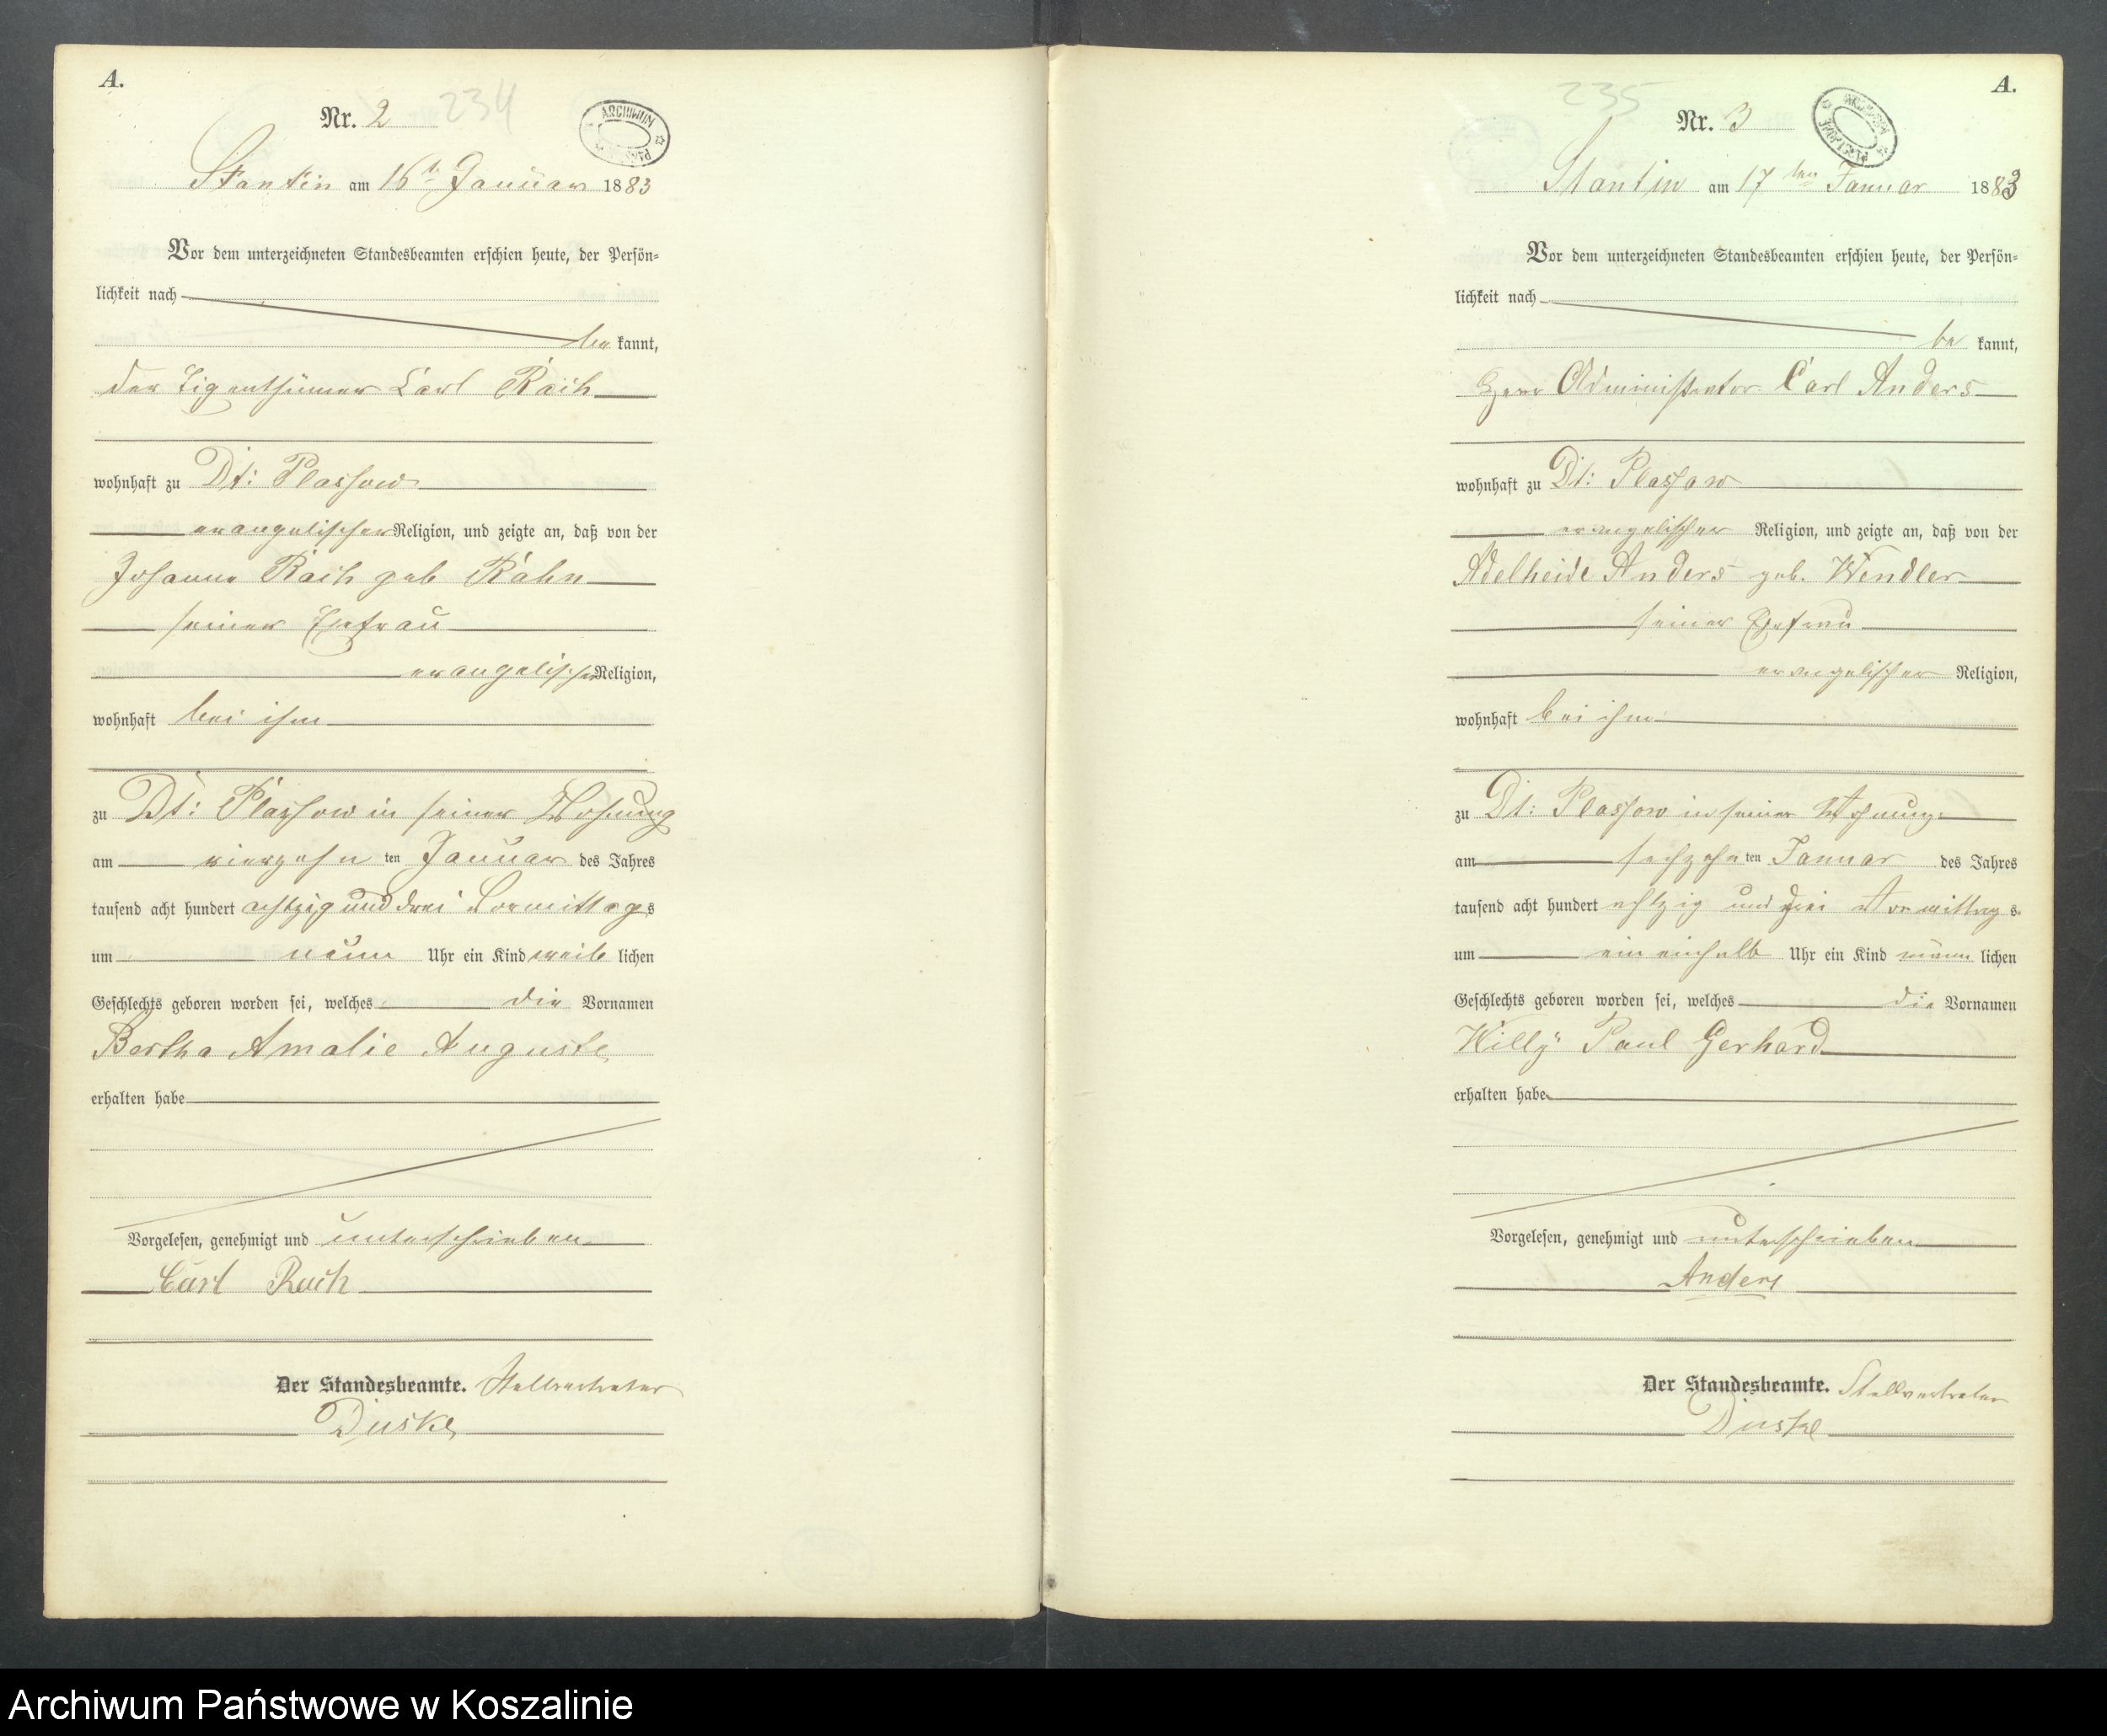 A.
234
Nr. 2
ARCHIWUM
Stantin am 16t Januar 1883
Vor dem unterzeichneten Standesbeamten erschien heute, der Persön-
lichkeit nach
be kannt,
der Eigenthümer Carl
wohnhaft zu Dt: Plassow
evangelischer Religion, und zeigte an, daß von der
Johanne geb
seiner Ehefrau
evangelischer Religion,
wohnhaft bei ihm
zu Dt: Plassow in seiner Wohnung
am vierzehn ten Januar des Jahres
tausend acht hundert achtzig und drei Vormittags
um neun Uhr ein Kind weib lichen
Geschlechts geboren worden sei, welches die Vornamen
Bertha Amalie Auguste
erhalten habe
Vorgelesen, genehmigt und unterschrieben
Carl
Der Standesbeamte. Stellvertreter
Duske
235
A.
Nr. 3
Stantin am 17ten Januar 1883
Vor dem unterzeichneten Standesbeamten erschien heute, der Persön-
lichkeit nach
be kannt,
Herr Administrator Carl Anders
wohnhaft zu Dt: Plassow
evangelischer Religion, und zeigte an, daß von der
Adelheide Anders geb. Wendler
seiner Ehefrau
evangelischer Religion,
wohnhaft bei ihm
zu Dt: Plassow in seiner Wohnung
am sechzehn ten Januar des Jahres
tausend acht hundert achtzig und drei Vormittags
um ein einhalb Uhr ein Kind männ lichen
Geschlechts geboren worden sei, welches die Vornamen
Willy Paul Gerhard
erhalten habe
Vorgelesen, genehmigt und unterschrieben
Anders
Der Standesbeamte. Stellvertreter
Duske
Archiwum Państwowe w Koszalinie